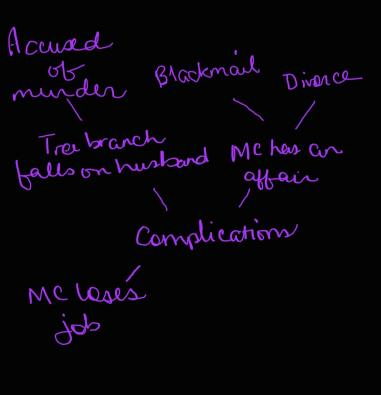 Accused
of
murder
Blackmail
Divorce
Tree branch
falls on husband
MC has an
affair
Complications
MC loses
job